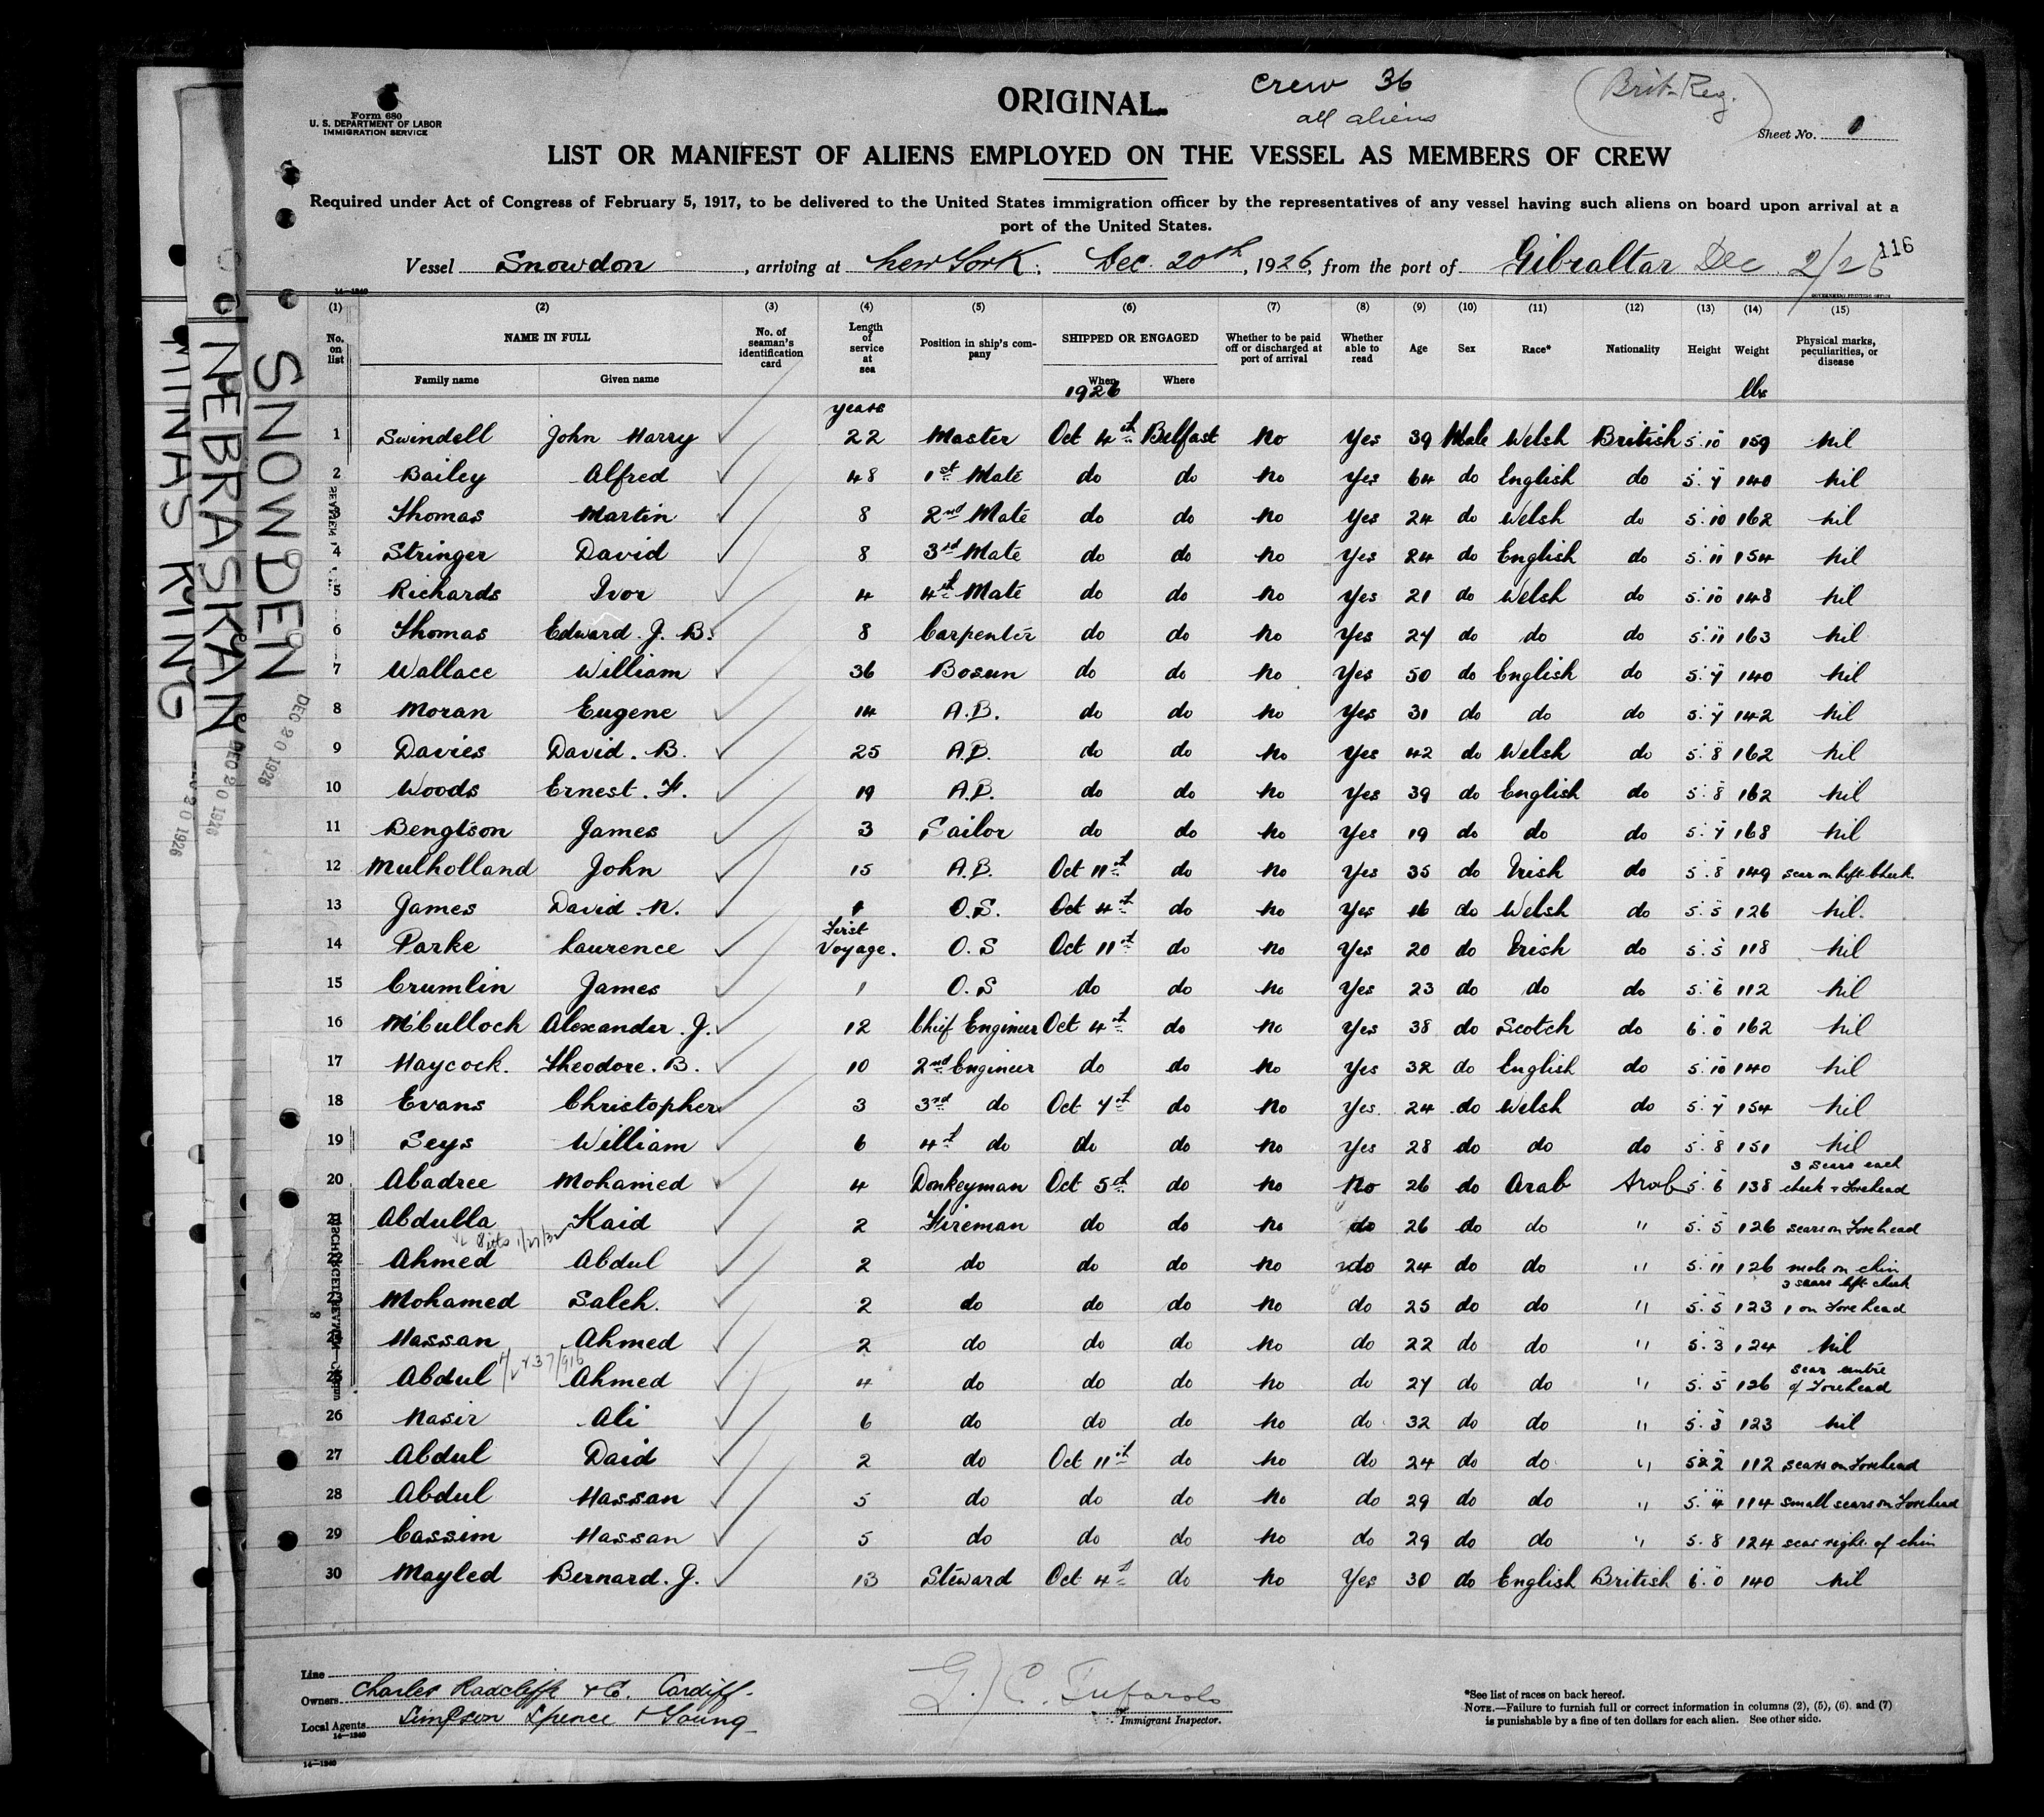 Form 680
U. S. DEPARTMENT OF LABOR
IMMIGRATION SERVICE
ORIGINAL
Crew 36
all aliens
(Brit-Reg.)
Sheet No. 1
LIST OR MANIFEST OF ALIENS EMPLOYED ON THE VESSEL AS MEMBERS OF CREW
Required under Act of Congress of February 5, 1917, to be delivered to the United States immigration officer by the representatives of any vessel having such aliens on board upon arrival at a
port of the United States.
Vessel Snowdon, arriving at New York, Dec. 20th, 1926, from the port of Gibraltar Dec 2/26
116
14—1240
GOVERNMENT PRINTING OFFICE
(1) (2) (3) (4) (5) (6) (7) (8) (9) (10) (11) (12) (13) (14) (15)
No. on list NAME IN FULL No. of seaman's identification card Length of service at sea Position in ship's company SHIPPED OR ENGAGED Whether to be paid off or discharged at port of arrival Whether able to read Age Sex Race* Nationality Height Weight Physical marks, peculiarities, or disease
Family name Given name When Where
years 1926 lbs
1 Swindell John Harry 22 Master Oct 4th Belfast No Yes 39 Male Welsh British 5.10 159 Nil
2 Bailey Alfred 48 1st Mate do do No Yes 64 do English do 5.7 140 Nil
3 Thomas Martin 8 2nd Mate do do No Yes 24 do Welsh do 5.10 162 Nil
4 Stringer David 8 3rd Mate do do No Yes 24 do English do 5.11 154 Nil
5 Richards Ivor 4 4th Mate do do No Yes 21 do Welsh do 5.10 148 Nil
6 Thomas Edward. J. B. 8 Carpenter do do No Yes 27 do do do 5.11 163 Nil
7 Wallace William 36 Bosun do do No Yes 50 do English do 5.7 140 Nil
8 Moran Eugene 14 A.B. do do No Yes 31 do do do 5.7 142 Nil
9 Davies David. B. 25 A.B. do do No Yes 42 do Welsh do 5.8 162 Nil
10 Woods Ernest. F. 19 A.B. do do No Yes 39 do English do 5.8 162 Nil
11 Bengtson James 3 Sailor do do No Yes 19 do do do 5.7 168 Nil
12 Mulholland John 15 A.B. Oct 11th do No Yes 35 do Irish do 5.8 149 scar on left cheek.
13 James David. N. 1 O.S. Oct 4th do No Yes 16 do Welsh do 5.5 126 Nil.
14 Parke Laurence First Voyage. O.S Oct 11th do No Yes 20 do Irish do 5.5 118 Nil
15 Crumlin James 1 O.S do do No Yes 23 do do do 5.6 112 Nil
16 McCulloch Alexander. J. 12 Chief Engineer Oct 4th do No Yes 38 do Scotch do 6.0 162 Nil
17 Haycock. Theodore. B. 10 2nd Engineer do do No Yes 32 do English do 5.10 140 Nil
18 Evans Christopher 3 3rd do Oct 7th do No Yes. 24 do Welsh do 5.7 154 Nil
19 Seys William 6 4th do do do No Yes 28 do do do 5.8 151 Nil
20 Abadree Mohamed 4 Donkeyman Oct 5th do No No 26 do Arab Arab 5.6 138 3 scars each cheek & Forehead
21 Abdulla Kaid 2 Fireman do do No do 26 do do " 5.5 126 scars on Forehead
22 Ahmed Abdul 2 do do do No do 24 do do " 5.11 126 mole on chin
23 Mohamed Saleh. 2 do do do No do 25 do do " 5.5 123 3 scars left cheek 1 on Forehead
24 Hassan Ahmed 2 do do do No do 22 do do " 5.3 124 Nil
25 Abdul Ahmed 4 do do do No do 27 do do " 5.5 126 scar centre of Forehead
26 Nasir Ali 6 do do do No do 32 do do " 5.3 123 Nil
27 Abdul Daid 2 do Oct 11th do No do 24 do do " 5.2 112 scars on Forehead
28 Abdul Hassan 5 do do do No do 29 do do " 5.4 114 small scars on Forehead
29 Cassim Hassan 5 do do do No do 29 do do " 5.8 124 scar right of chin
30 Mayled Bernard. J. 13 Steward Oct 4th do No Yes 30 do English British 6.0 140 Nil
Line
Owners Charles Radcliffe & Co. Cardiff.
Local Agents Simpson Spence & Young
14—1240
14—1240
Immigrant Inspector.
*See list of races on back hereof.
NOTE.—Failure to furnish full or correct information in columns (2), (5), (6) and (7)
is punishable by a fine of ten dollars for each alien. See other side.
SNOWDEN
DEC 20 1926
NEBRASKAN
DEC 20 1926
MINAS KING
20 1926